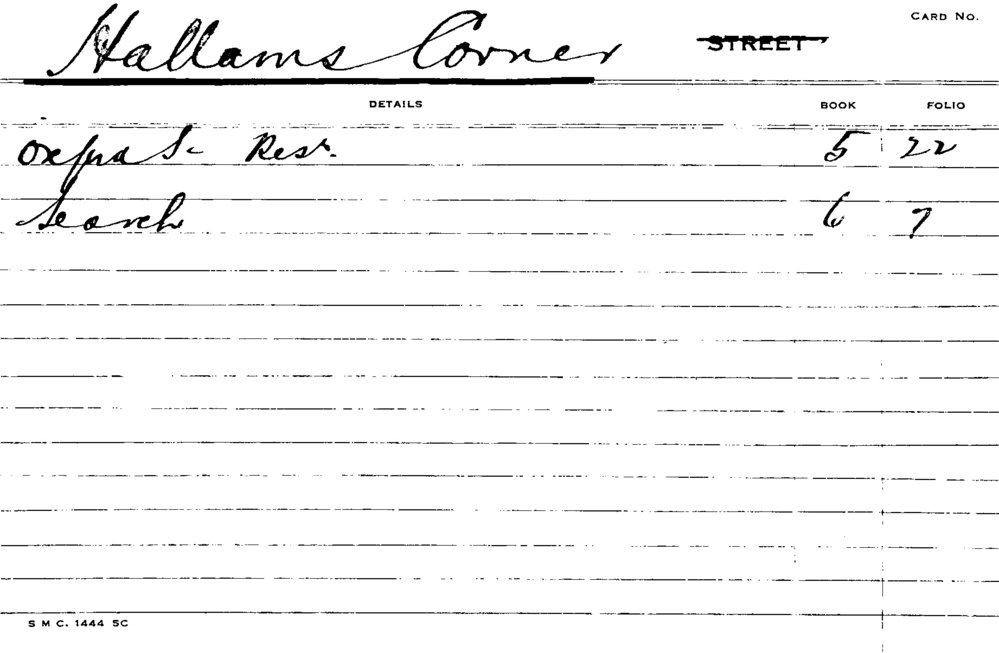 Hallams Corner STREET CARD NO.
DETAILS BOOK FOLIO
Resr. 5 22
Search 6 7
S M C. 1444 5C